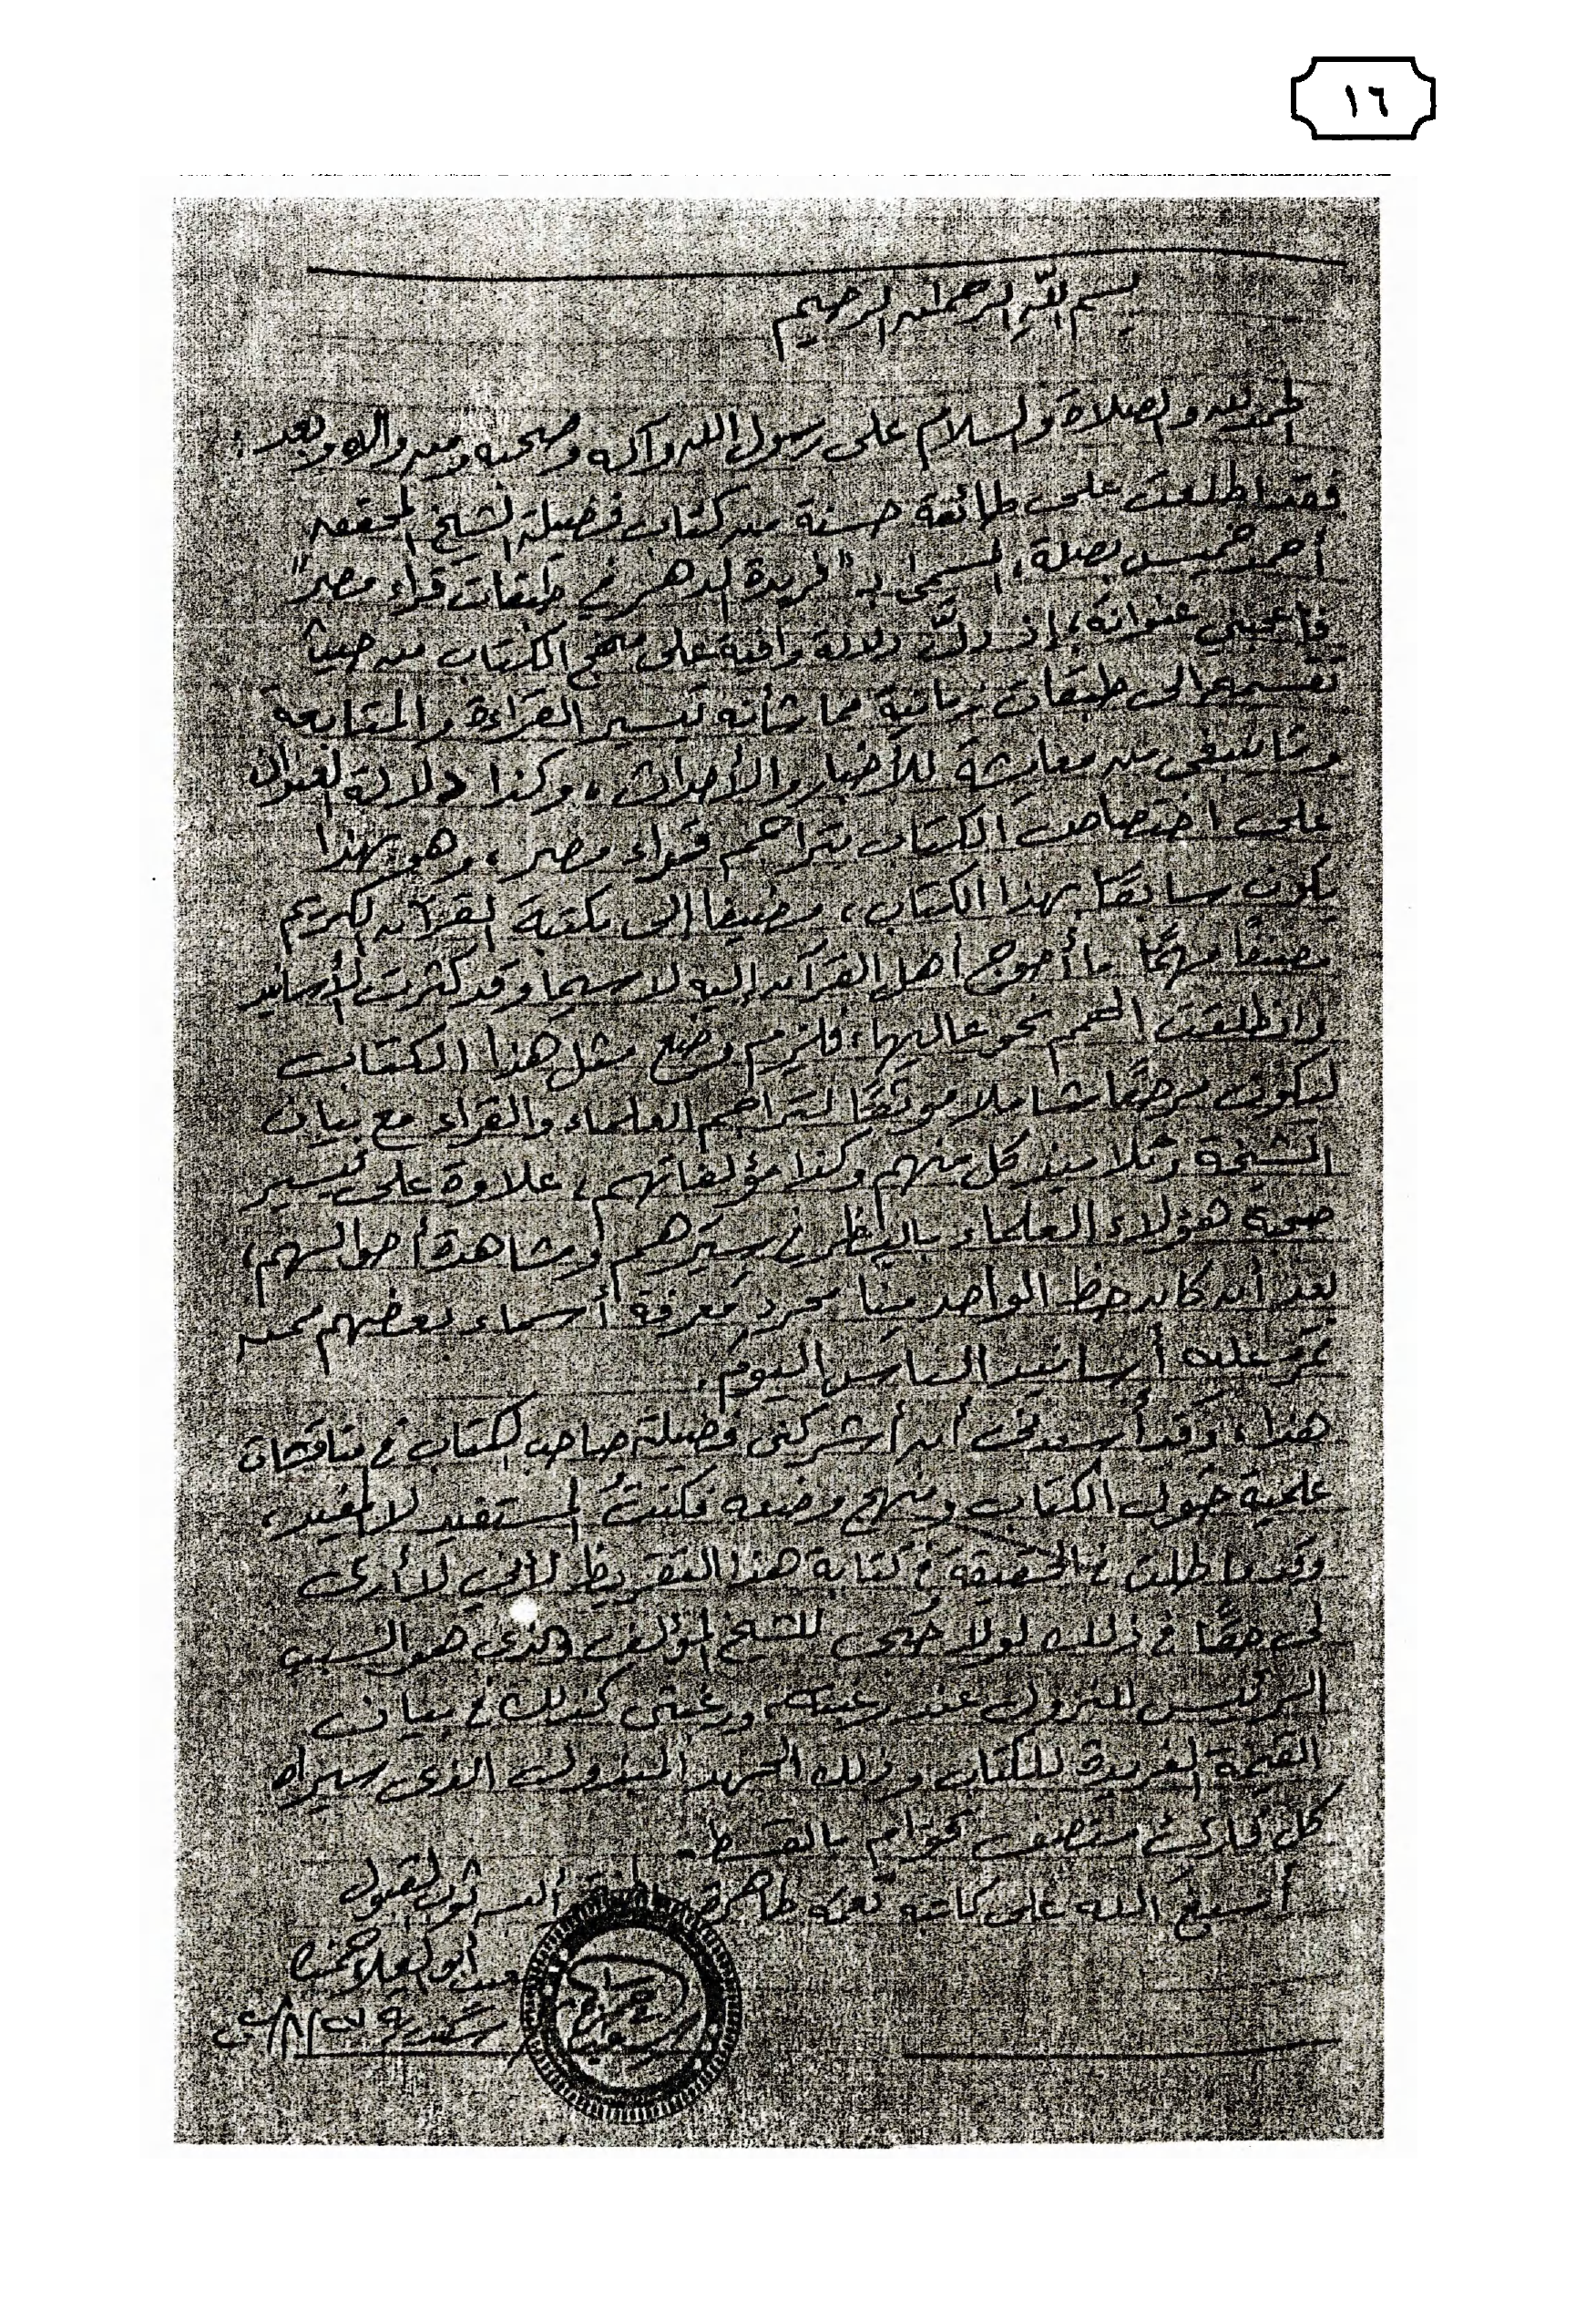 ١٦
بسم الله الرحمن الرحيم
الحمد لله والصلاة والسلام على رسول الله وآله وصحبه ومن والاه وبعد :
فقد اطلعت على طائفة حسنة من كتاب فضيلة الشيخ المحقق
أحمد خميس بصلة، المسمى بـ "فريدة الدهر في طبقات قراء مصر"
فأعجبني عنوانه، إذ دلّ دلالة وافية على منهج الكتاب من حيث
تقسيمه إلى طبقات زمانية مما شأنه تيسير القراءة والمتابعة
من معايشة للأخبار والأحداث، وكذا دلالة العنوان
على اختصاص الكتاب بتراجم قراء مصر، وهو بهذا
يكون سابقًا بهذا الكتاب، مضيفا إلى مكتبة القرآن الكريم
مصنفًا مهمًّا ما أحوج أهل القرآن إليه لا سيما وقد كثرت الأسانيد
وانطلقت الهمم نحو عاليها، فلزم وضع مثل هذا الكتاب
ليكون مرجعًا شاملا موثقًا لتراجم العلماء والقراء مع بيان
المشيخة وتلاميذ كل منهم وكذا مؤلفاتهم، علاوة على تيسير
صحبة هؤلاء العلماء بالنظر في سيرهم ومشاهدة أحوالهم،
بعد أن كان حظ الواحد منّا مجرد معرفة أسماء بعضهم ممن
تمر عليه أسانيد الناس اليوم.
هذا، وقد أسعدني أن أشركني فضيلة صاحب الكتاب في مناقشات
علمية حول الكتاب ومنهج وضعه فكنتُ المستفيد لا المفيد،
وقد ماطلت في الحقيقة في كتابة هذا التقريظ لأني لا أرى
لي حقًّا في ذلك لولا حُبّي للشيخ المؤلف والذي هو السبب
الرئيس للنزول عند رغبته ورغبتي كذلك في بيان
القيمة الفريدة للكتاب وذلك الجهد المبذول الذي سيراه
كل قارئ منصف قوّام بالقسط.
أسبغ الله على كاتبه نعمه ظاهرة وباطنة وألبسه ثوب القبول
أبو العلا حمزة